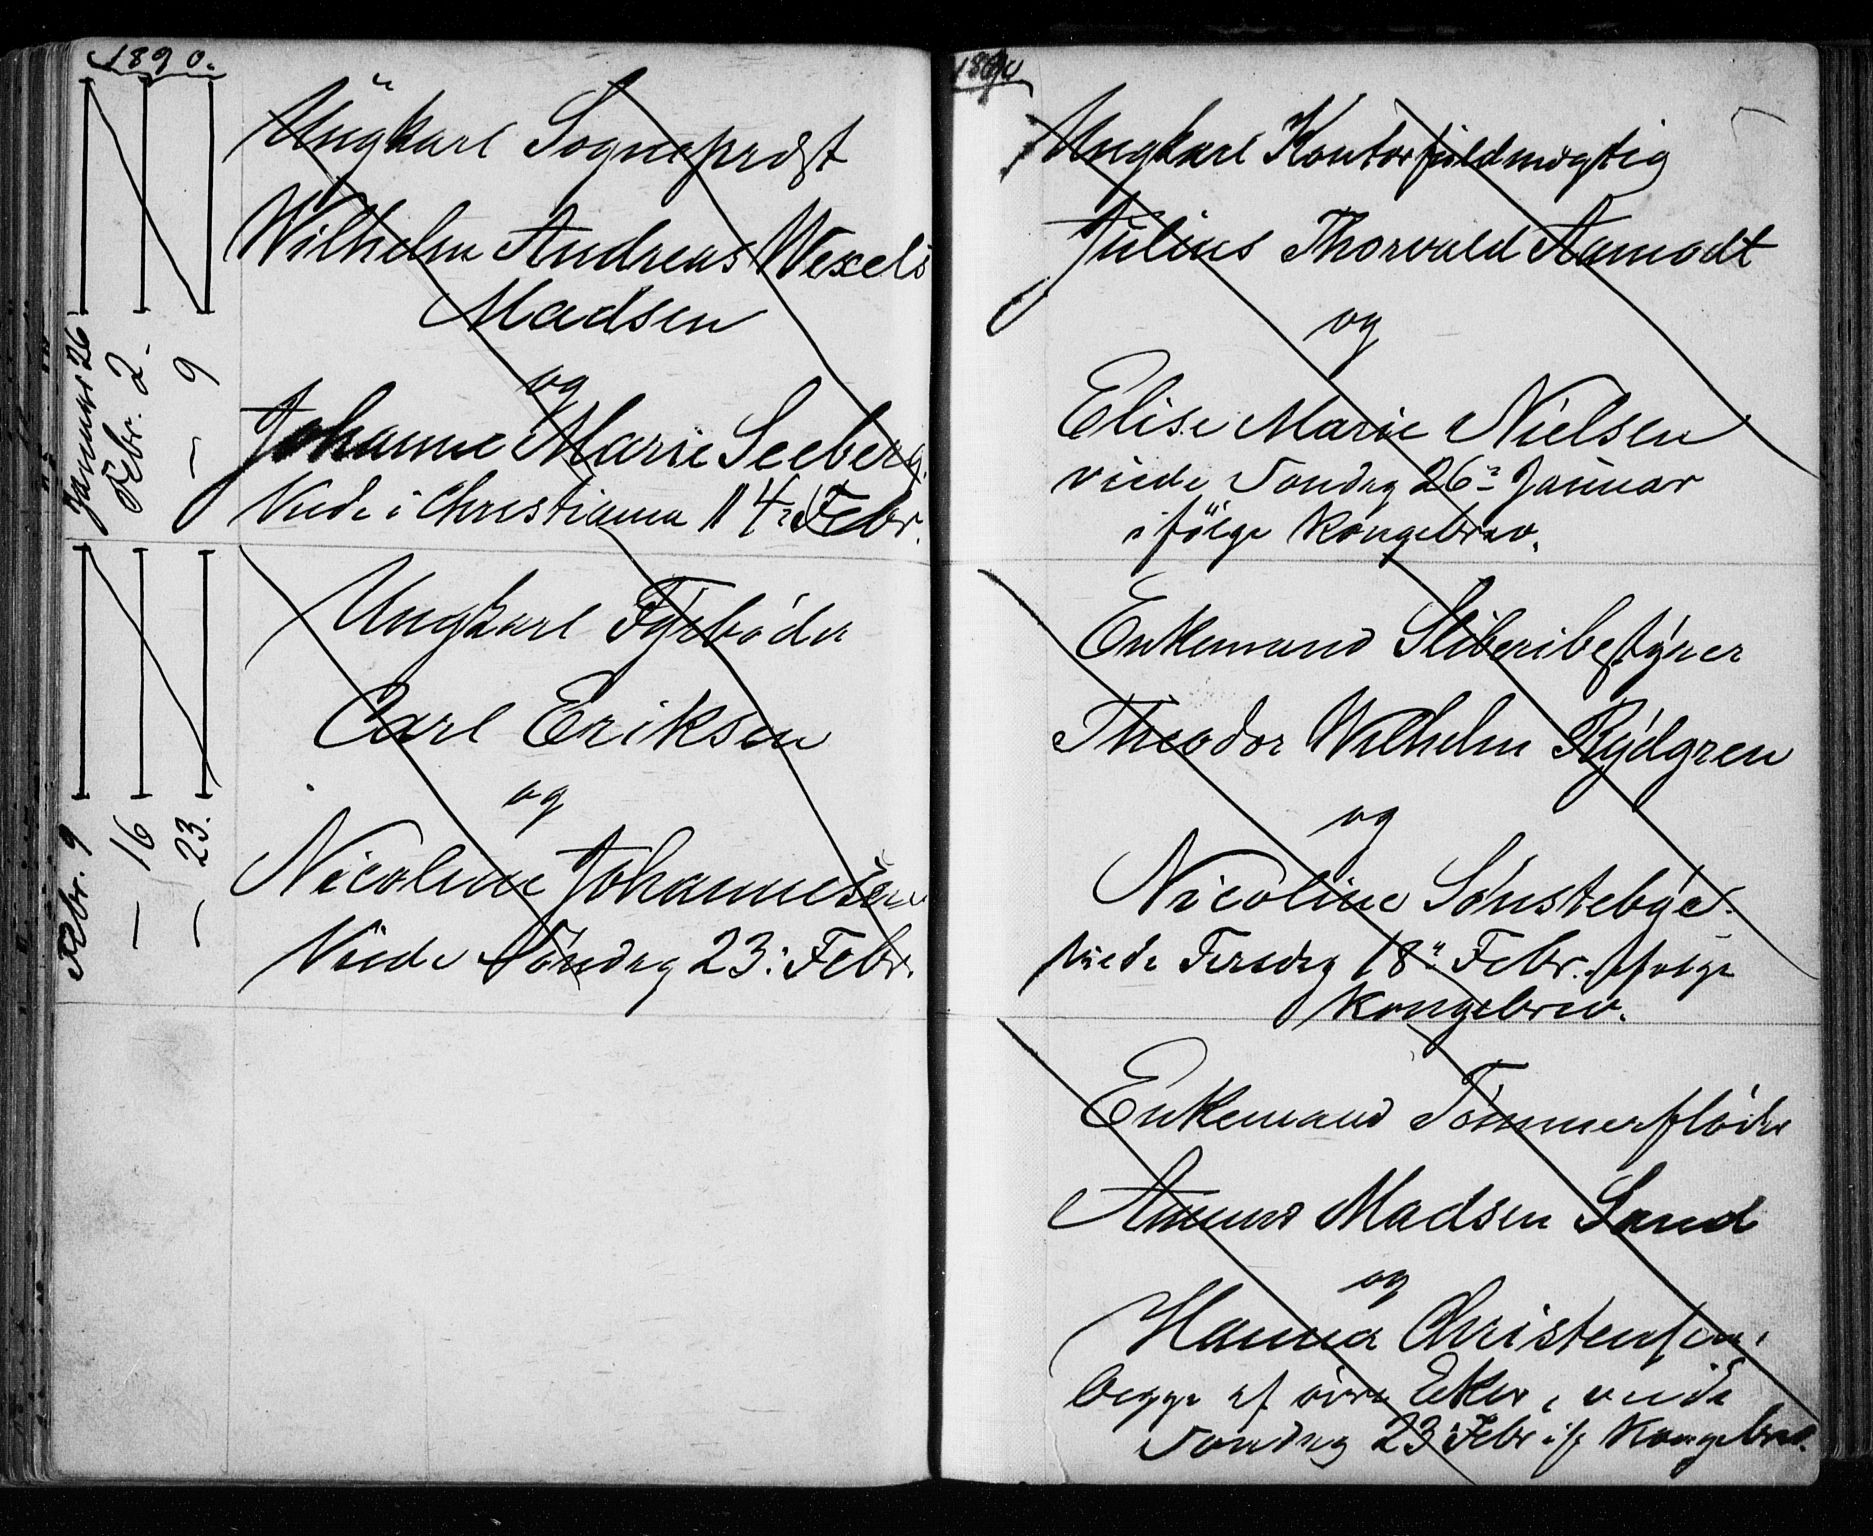 1890.
Januar 26
Febr. 2.
— 9
Ungkarl Sogneprest
Wilhelm Andreas Wexels
Madsen
og
Johanne Marie Seeberg.
Viede i Christiania 14 Febr.
Febr. 9
— 16
— 23.
Ungkarl Fyrbøder
Carl Eriksen
og
Nicoline Johannesen
Viede Søndag 23: Febr.
1890
Ungkarl Kontorfuldmægtig
Julius Thorvald Aamodt
og
Elise Marie Nielsen
viede Søndag 26: Januar
ifølge Kongebrev.
Enkemand Sliberibestyrer
Theodor Wilhelm Rydgren
og
Nicoline Sønstebye.
Viede Tirsdag 18: Febr. ifølge
Kongebrev.
Enkemand Tømmerfløder
Amund Madsen Sand
og
Hanna Christensen,
begge af øvre Eker, viede
Søndag 23 Febr if Kongebrev.